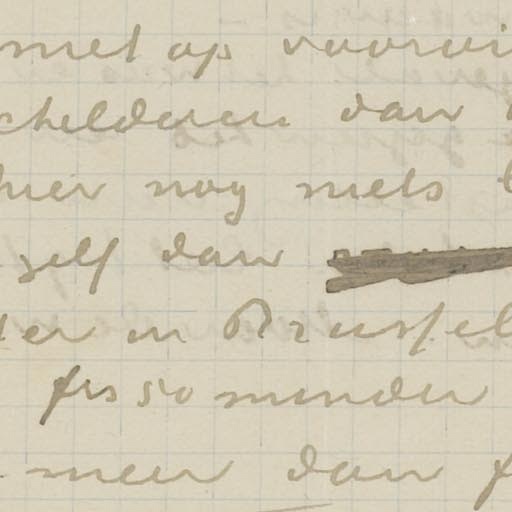 met op vooruit
schilderen dan
hier nog niets
zelf dan
er in Brussel
frs 50 minder
meer dan f